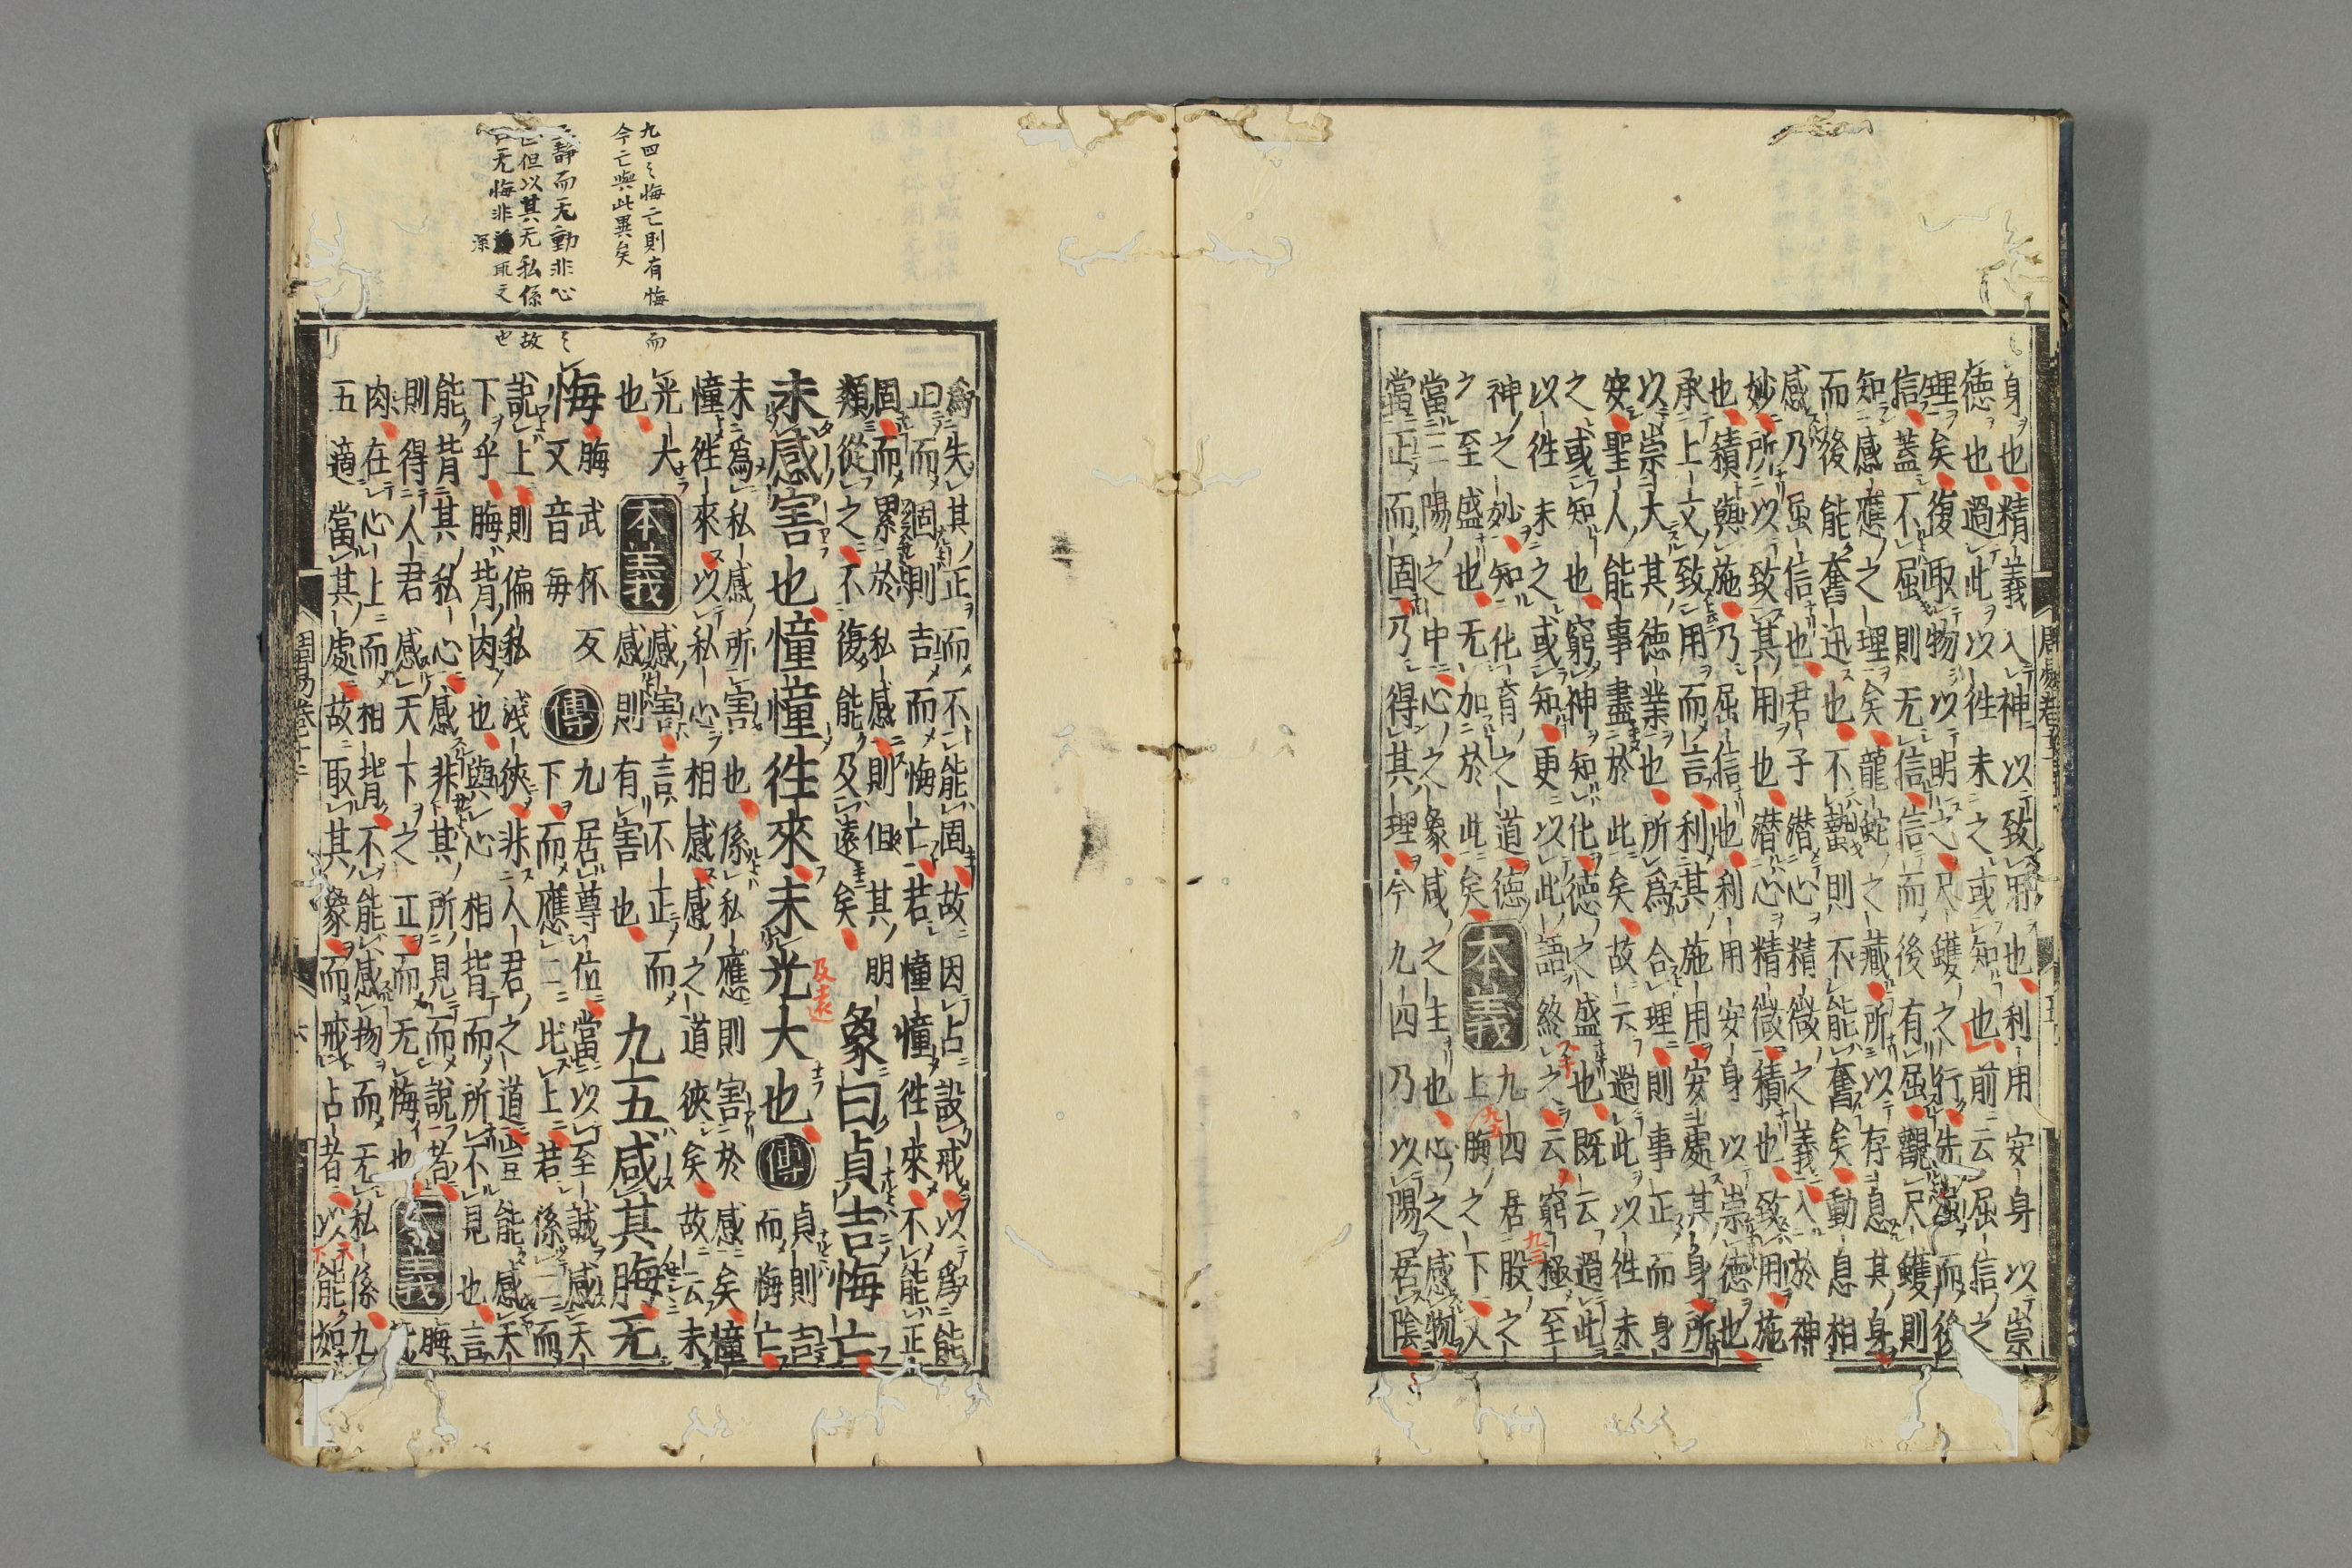 身也精義入神以致用也利用安身以崇
德也過此以往未之或知也前云屈信之
理矣復取物以明之尺蠖之行先屈而後
信蓋不屈則无信信而後有屈觀尺蠖則
知感應之理矣龍蛇之藏所以存息其身
而後能奮迅也不蟄則不能奮矣動息相
感乃屈信也君子潜心精微之義入於神
妙所以致其用也潜心精微積也致用施
也積與施乃屈信也利用安身以崇德也
承上文致用而言利其施用安處其身所
以崇大其德業也所爲合理則事正而身
安聖人能事盡於此矣故云過此以徃未
之或知也窮神知化德之盛也既云過此
以徃未之或知更以此語終之云窮極至
神之妙知化育之道德
之至盛也无加於此矣
本義
九四居股之
上脢之下又
當三陽之中心之象咸之主也心之感物
當正而固乃得其理今九四乃以陽居陰
周易卷
九四〻悔亡則有悔而
今亡與此異矣
靜而无動非心〻
但以其无私係故
无悔非
深
取之也
爲失其正而不能固故因占設戒以爲能
正而固則吉而悔亡若憧憧徃來不能正
固而累於私感則但其朋
類從之不復能及遠矣
象曰貞吉悔亡
未感害也憧憧徃來未光大也
及遠
傳
貞則吉
而悔亡
未爲私感所害也係私應則害於感矣憧
憧徃來以私心相感感之道狹矣故云未
光大
也
本義
感害言不正而
感則有害也
九五咸其脢无
悔
脢武杯反
又音每
傳
九居尊位當以至誠感天
下而應二比上若係二而
說上則偏私淺狹非人君之道豈能感天
下乎脢背肉也與心相背而所不見也言
能背其私心感非其所見而說者
則得人君感天下之正而无悔也
本義
脢背
肉在心上而相背不能感物而无私係九
五適當其處故取其象而戒占者以能如
周易卷十二
六